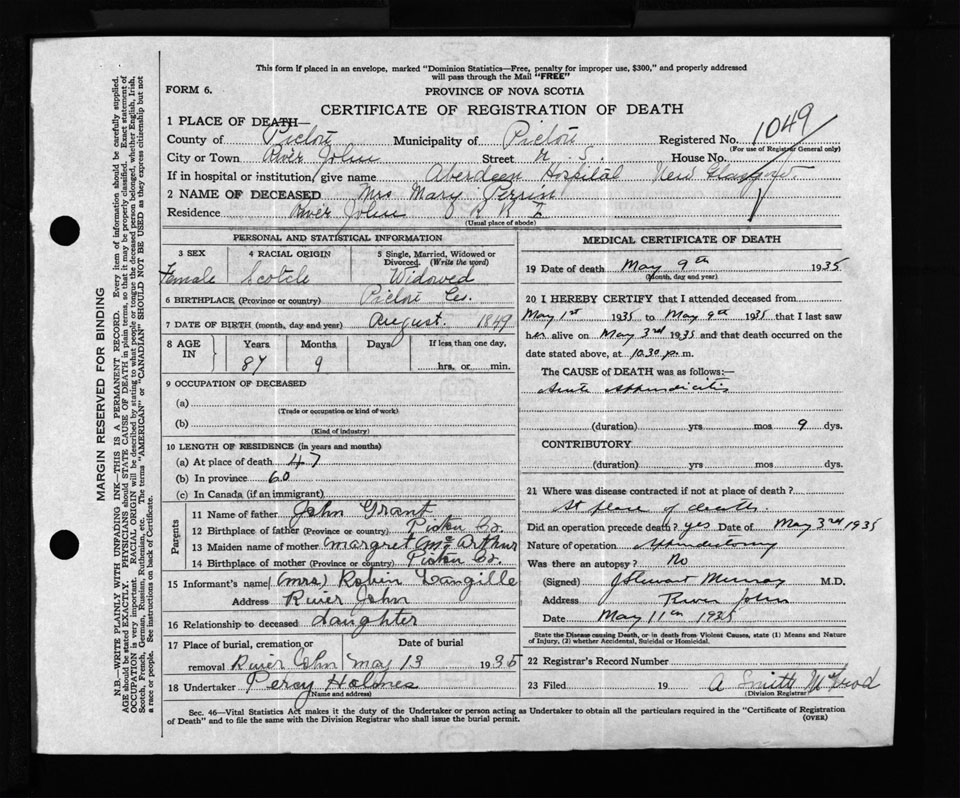 This form if placed in an envelope, marked "Dominion Statistics—Free, penalty for improper use, $300," and properly addressed
will pass through the Mail "FREE"
FORM 6.
PROVINCE OF NOVA SCOTIA
CERTIFICATE OF REGISTRATION OF DEATH
1 PLACE OF DEATH—
County of Pictou Municipality of Pictou Registered No. 1049
(For use of Registrar General only)
City or Town River John Street N. S. House No.
If in hospital or institution, give name Aberdeen Hospital New Glasgow
2 NAME OF DECEASED Mrs Mary Perrin
Residence River John
(Usual place of abode)
PERSONAL AND STATISTICAL INFORMATION
3 SEX 4 RACIAL ORIGIN 5 Single, Married, Widowed or
Divorced. (Write the word)
Female Scotch Widowed
6 BIRTHPLACE (Province or country) Pictou Co.
7 DATE OF BIRTH (month, day and year) August. 1849
8 AGE IN Years Months Days If less than one day,
87 9 hrs. or min.
9 OCCUPATION OF DECEASED
(a)
(Trade or occupation or kind of work)
(b)
(Kind of industry)
10 LENGTH OF RESIDENCE (in years and months)
(a) At place of death 47
(b) In province 60
(c) In Canada (if an immigrant)
Parents
11 Name of father John Grant
12 Birthplace of father (Province or country) Pictou Co.
13 Maiden name of mother Margret McArthur
14 Birthplace of mother (Province or country) Pictou Co.
15 Informant's name (Mrs) Robin Langille
Address River John
16 Relationship to deceased Daughter
17 Place of burial, cremation or Date of burial
removal River John May 13 1935
18 Undertaker Percy Holmes
(Name and address)
MEDICAL CERTIFICATE OF DEATH
19 Date of death May 9th 1935
(Month, day and year)
20 I HEREBY CERTIFY that I attended deceased from
May 1st 1935 to May 9th 1935 that I last saw
her alive on May 3rd 1935 and that death occurred on the
date stated above, at 10.30 p. m.
The CAUSE of DEATH was as follows:—
Acute Appendicitis
(duration) yrs mos 9 dys.
CONTRIBUTORY
(duration) yrs mos dys.
21 Where was disease contracted if not at place of death?
At place of death.
Did an operation precede death? yes Date of May 3rd 1935
Nature of operation Appendectomy
Was there an autopsy? No
(Signed) J Stewart Murray M.D.
Address River John
Date May 11th 1935
State the Disease causing Death, or in death from Violent Causes, state (1) Means and Nature
of Injury, (2) whether Accidental, Suicidal or Homicidal.
22 Registrar's Record Number
23 Filed 19 A Smith McLeod
(Division Registrar)
Sec. 46—Vital Statistics Act makes it the duty of the Undertaker or person acting as Undertaker to obtain all the particulars required in the "Certificate of Registration
of Death" and to file the same with the Division Registrar who shall issue the burial permit.
(OVER)
MARGIN RESERVED FOR BINDING
N.B.—WRITE PLAINLY WITH UNFADING INK—THIS IS A PERMANENT RECORD. Every item of information should be carefully supplied.
AGE should be stated EXACTLY. PHYSICIANS should STATE CAUSE OF DEATH in plain terms, so that it may be properly classified. Exact statement of
OCCUPATION is very important. RACIAL ORIGIN will be described by stating to what people or tongue the deceased person belonged, whether English, Irish,
Scotch, French, German, Russian, Ruthenian, etc. The terms "AMERICAN" or "CANADIAN" SHOULD NOT BE USED as they express citizenship but not
a race or people. See instructions on back of Certificate.